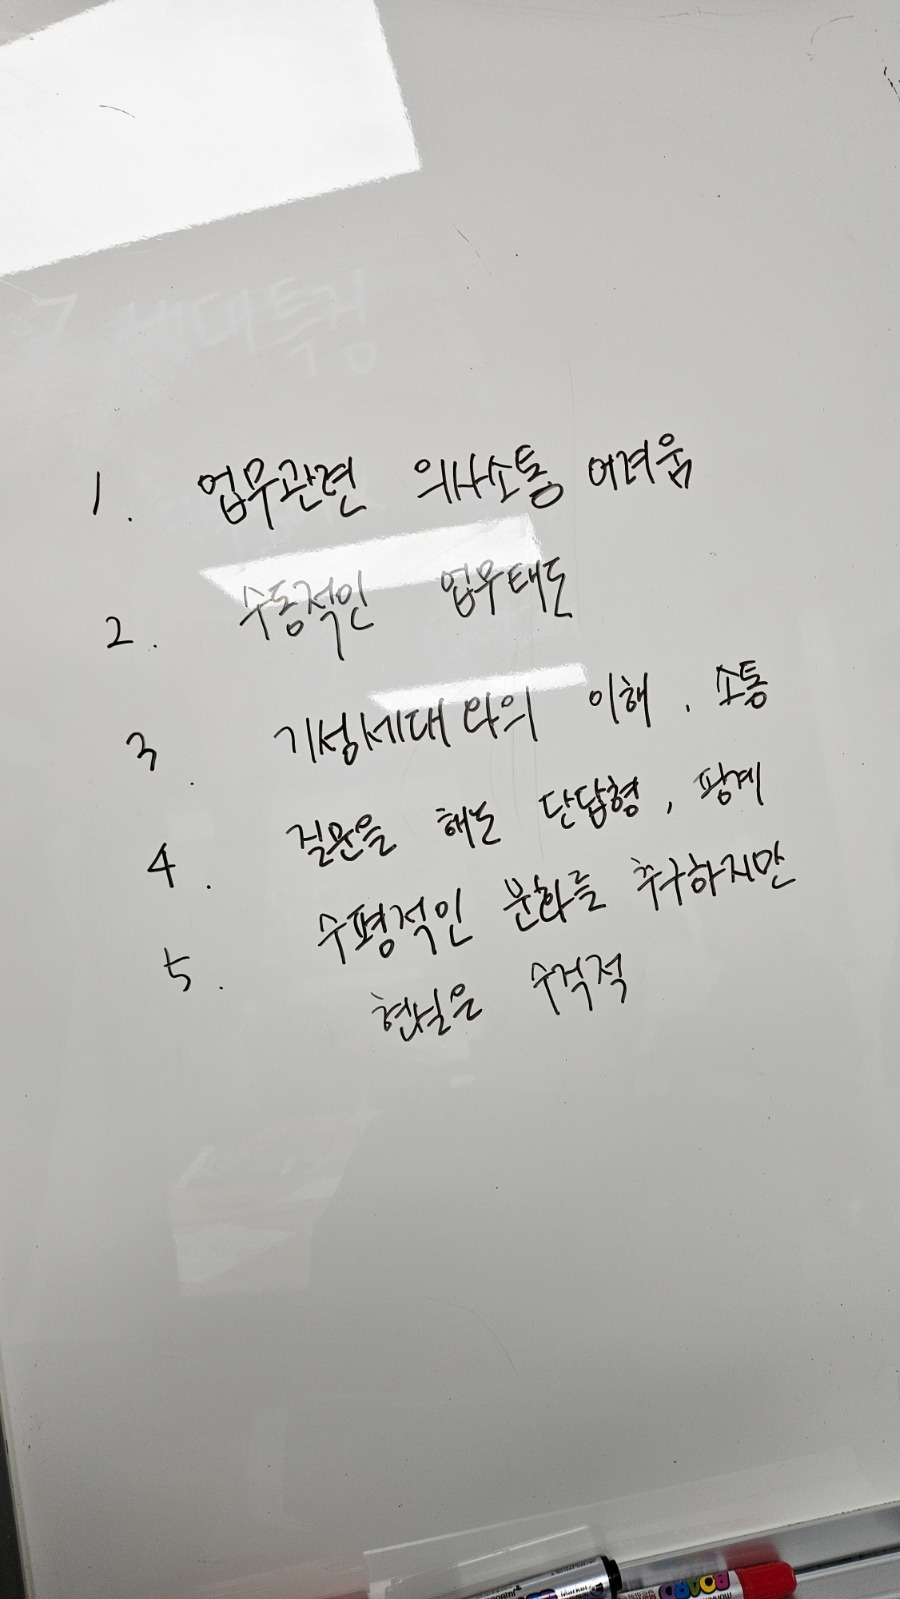 세대특징
1. 업무관련 의사소통 어려움
2. 수동적인 업무태도
3. 기성세대와의 이해, 소통
4. 질문을 해도 단답형, 핑계
5. 수평적인 문화를 추구하지만
현실은 수직적